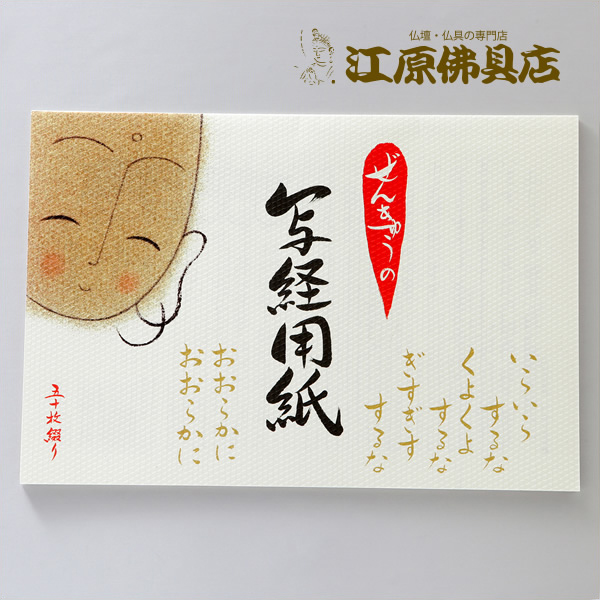 仏壇・仏具の専門店
江原佛具店
ぜんきゅうの
写経用紙
いらいら
するな
くよくよ
するな
ぎすぎす
するな
おおらかに
おおらかに
五十枚綴り